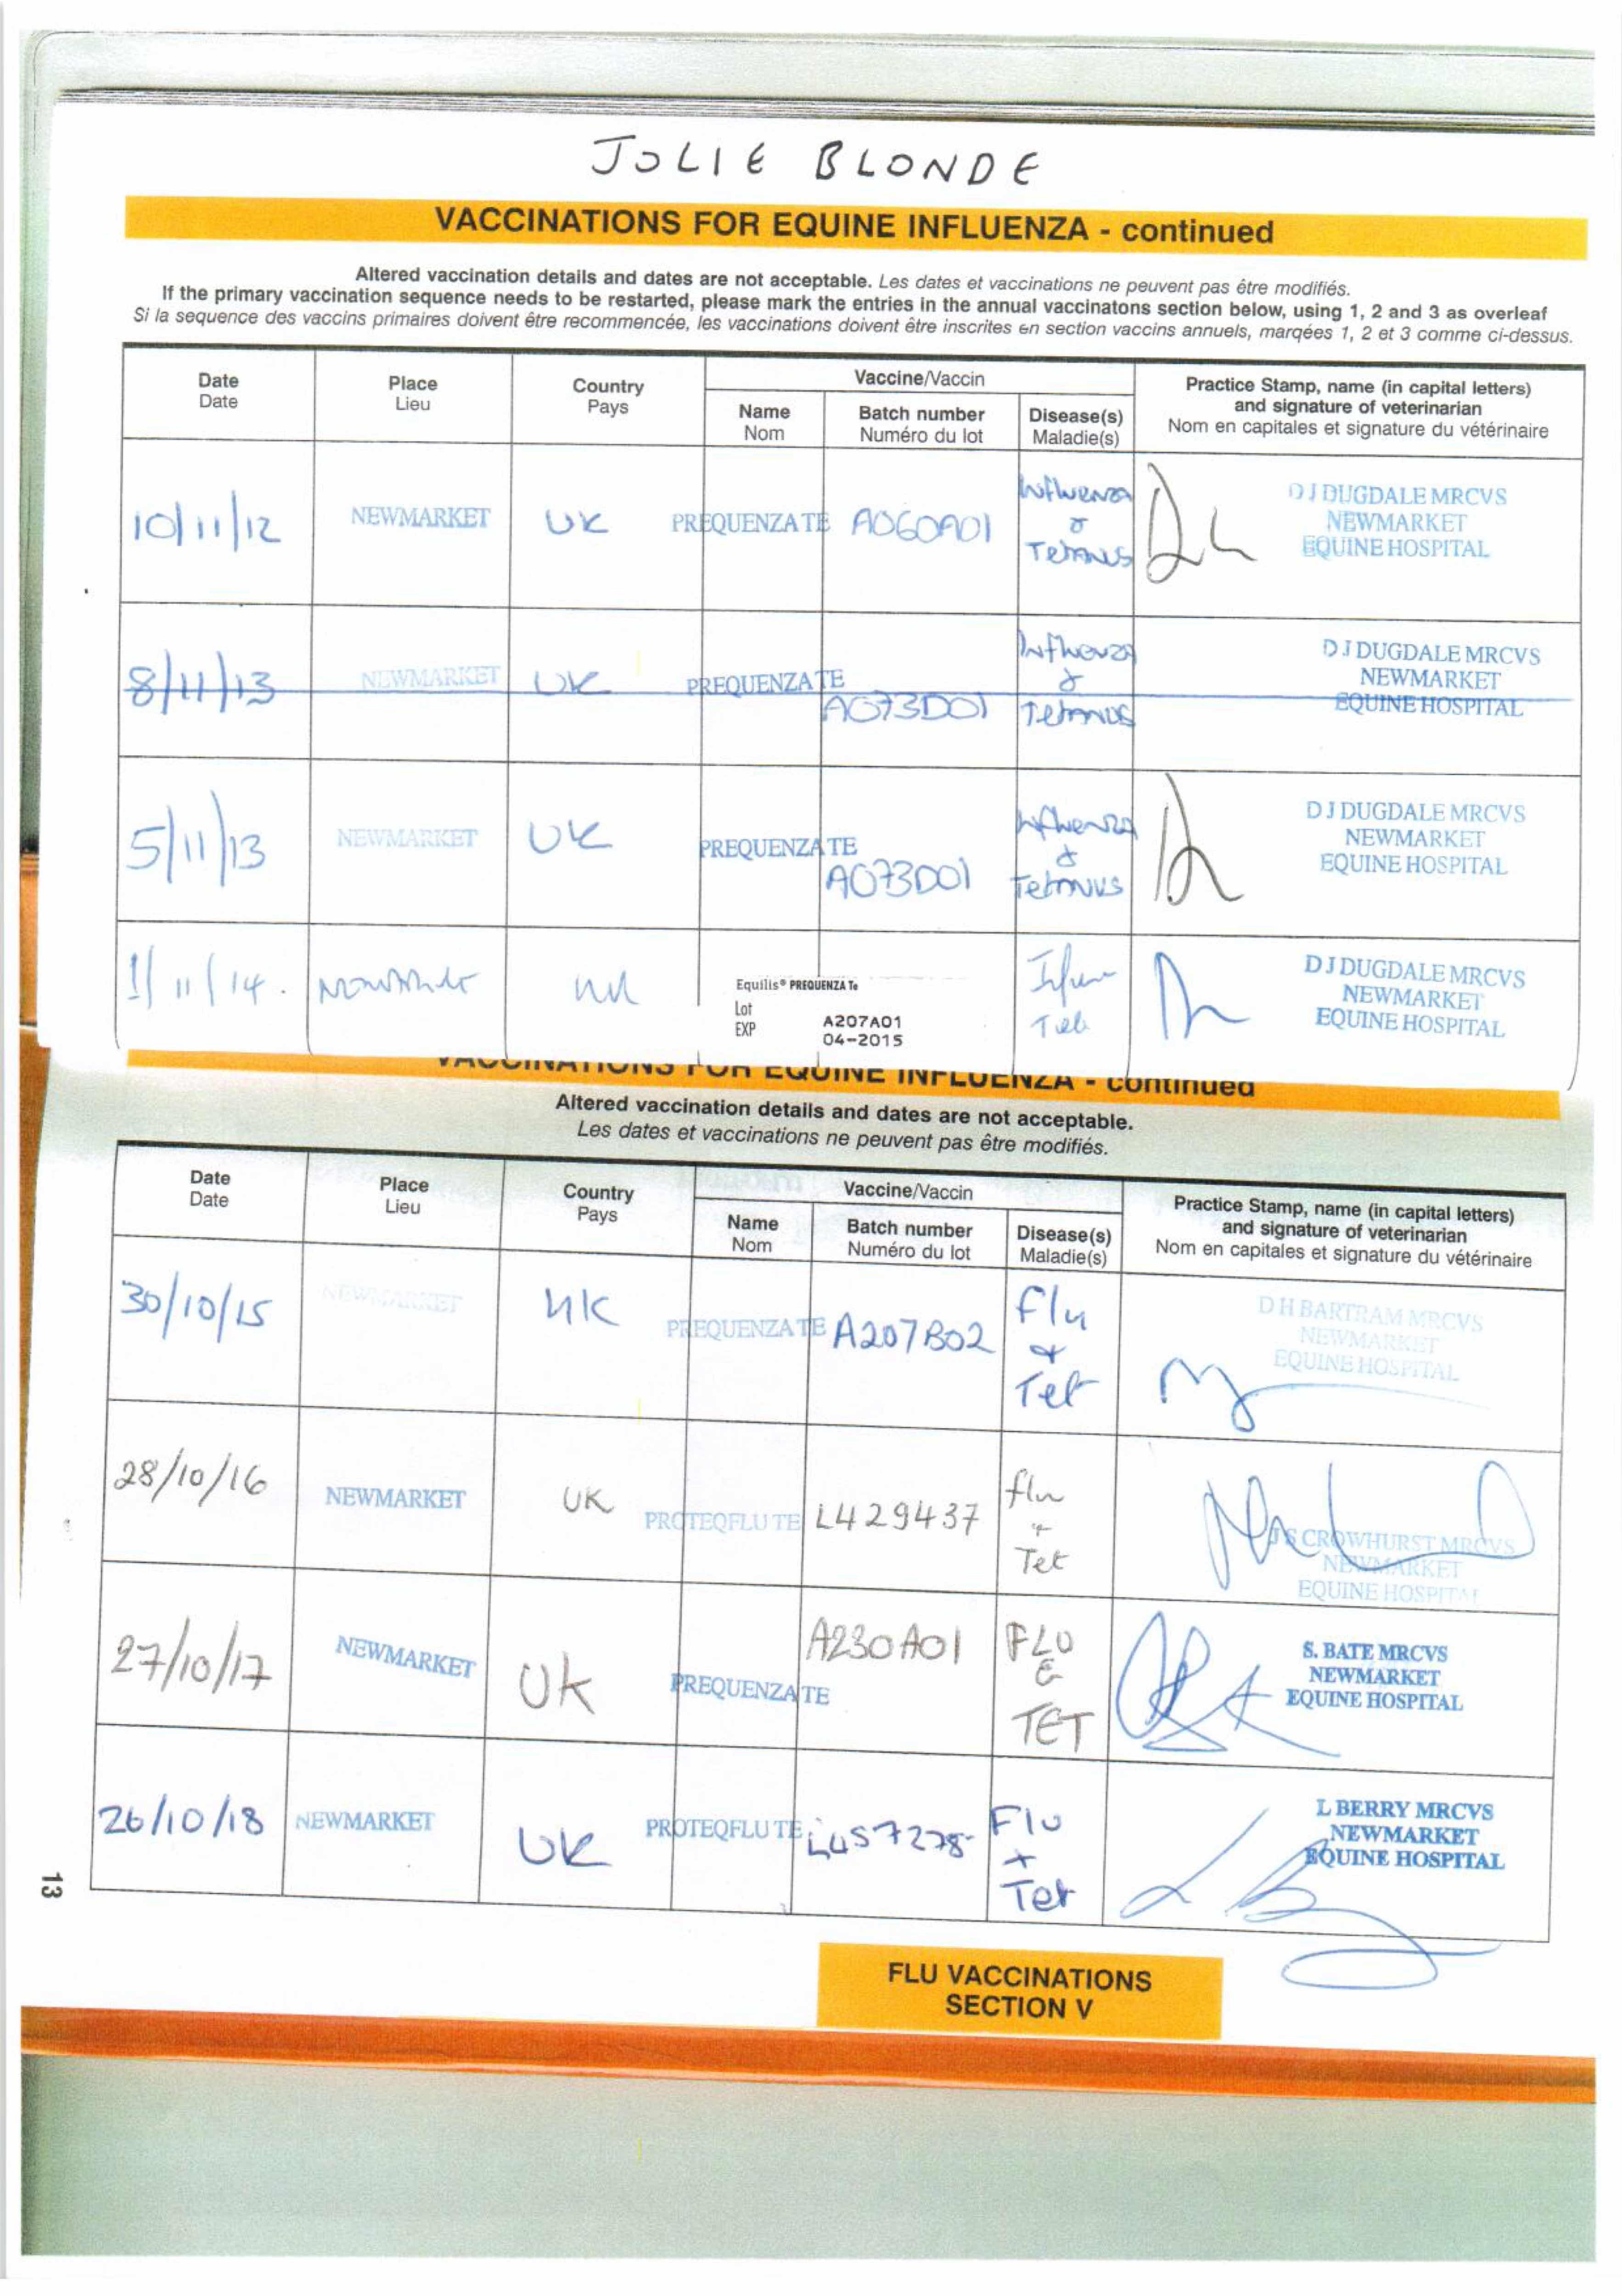 JOLIE BLONDE
VACCINATIONS FOR EQUINE INFLUENZA - continued
Altered vaccination details and dates are not acceptable. Les dates et vaccinations ne peuvent pas être modifiés.
If the primary vaccination sequence needs to be restarted, please mark the entries in the annual vaccinatons section below, using 1, 2 and 3 as overleaf
Si la sequence des vaccins primaires doivent être recommencée, les vaccinations doivent être inscrites en section vaccins annuels, marqées 1, 2 et 3 comme ci-dessus.
Date Place Country Vaccine/Vaccin Practice Stamp, name (in capital letters)
Date Lieu Pays Name Batch number Disease(s) and signature of veterinarian
Nom Numéro du lot Maladie(s) Nom en capitales et signature du vétérinaire
10/11/12 NEWMARKET UK PREQUENZA TE A060A01 Influenza & Tetanus D J DUGDALE MRCVS
NEWMARKET
EQUINE HOSPITAL
8/11/13 NEWMARKET UK PREQUENZA TE A073D01 Influenza & Tetanus D J DUGDALE MRCVS
NEWMARKET
EQUINE HOSPITAL
5/11/13 NEWMARKET UK PREQUENZA TE A073D01 Influenza & Tetanus D J DUGDALE MRCVS
NEWMARKET
EQUINE HOSPITAL
1/11/14. Equilis® PREQUENZA Te D J DUGDALE MRCVS
Lot A207A01 NEWMARKET
EXP 04-2015 EQUINE HOSPITAL
VACCINATIONS FOR EQUINE INFLUENZA - continued
Altered vaccination details and dates are not acceptable.
Les dates et vaccinations ne peuvent pas être modifiés.
Date Place Country Vaccine/Vaccin Practice Stamp, name (in capital letters)
Date Lieu Pays Name Batch number Disease(s) and signature of veterinarian
Nom Numéro du lot Maladie(s) Nom en capitales et signature du vétérinaire
30/10/15 NEWMARKET UK PREQUENZA TE A207B02 Flu & Tet D H BARTRAM MRCVS
NEWMARKET
EQUINE HOSPITAL
28/10/16 NEWMARKET UK PROTEQFLU TE L429437 flu + Tet J S CROWHURST MRCVS
NEWMARKET
EQUINE HOSPITAL
27/10/17 NEWMARKET UK PREQUENZA TE A230A01 FLU & TET S. BATE MRCVS
NEWMARKET
EQUINE HOSPITAL
26/10/18 NEWMARKET UK PROTEQFLU TE L457278 Flu + Tet L BERRY MRCVS
NEWMARKET
EQUINE HOSPITAL
13
FLU VACCINATIONS
SECTION V